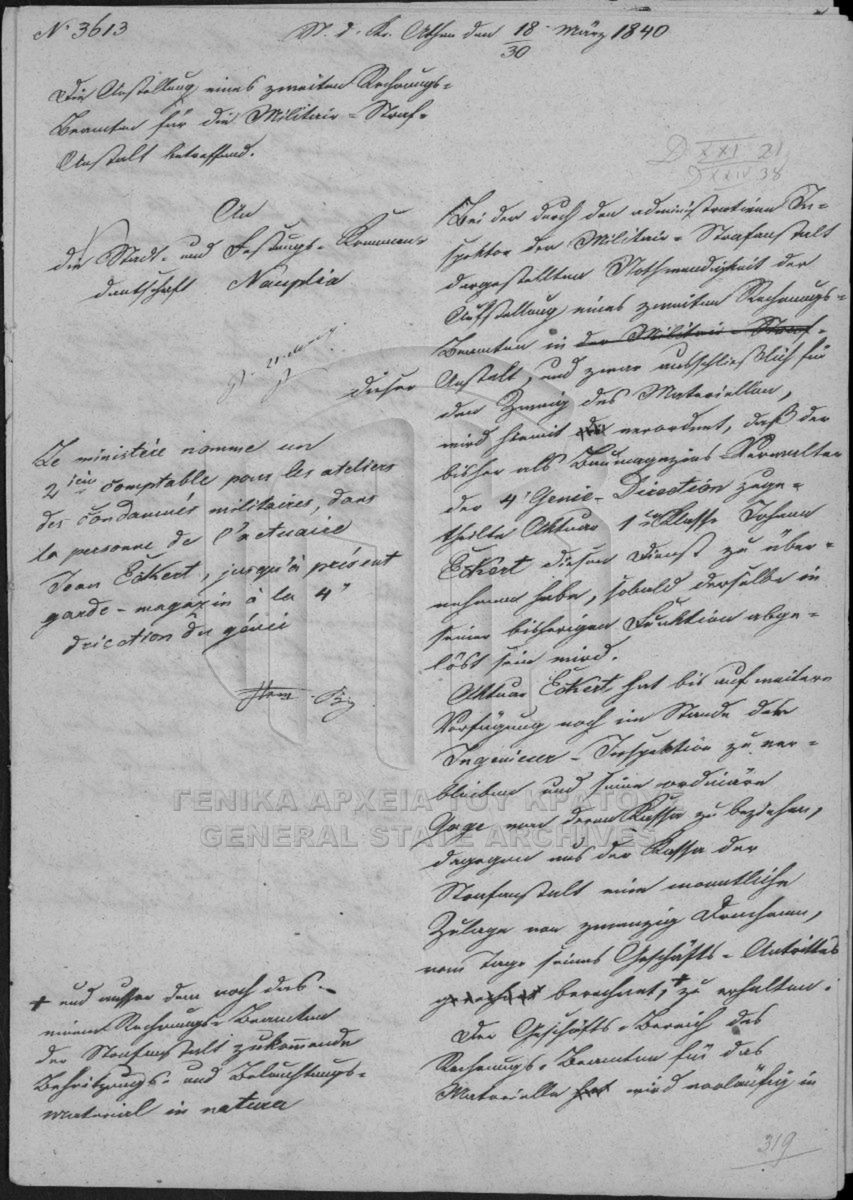 N° 3613
M. d. Kr. Athen den 18/30 März 1840
Die Anstellung eines zweiten Rechnungs-
Beamten für die Militair-Straf-
Anstalt betreffend.
D XXI 21
D XXIV 38
An
die Stadt- und Festungs-Komman-
dantschaft Nauplia
Le ministère nomme un
2ième comptable pour les ateliers
des condamnés militaires, dans
la personne de l'actuaire
Jean Eckert, jusqu'à présent
garde-magazin à la 4e
direction du génie
+ und ausser dem noch das
einem Rechnungs-Beamten
der Strafanstalt zukommende
Beheitzungs- und Beleuchtungs-
material in natura
Bei der durch den administrativen In-
spektor der Militair-Strafanstalt
dargestellten Nothwendigkeit der
Aufstellung eines zweiten Rechnungs-
Beamten in der Militair-Straf-
dieser Anstalt, und zwar ausschließlich für
den Zweig des Materiellen,
wird hiemit verordnet, daß der
bisher als Baumagazins-Verwalter
der 4' Genie-Direction zuge-
theilte Aktuar 1ter Klasse Johann
Eckert diesen Dienst zu über-
nehmen habe, sobald derselbe in
seiner bisherigen Funktion abge-
löst sein wird.
Aktuar Eckert hat bis auf weitere
Verfügung noch im Stande der
Ingenieur-Inspektion zu ver-
bleiben und seine ordinäre
Gage von deren Kassa zu beziehen,
dagegen aus der Kassa der
Strafanstalt eine monatliche
Zulage von zwanzig Drachmen,
vom Tage seines Geschäfts-Antrittes
berechnet, + zu erhalten.
Der Geschäfts-Bereich des
Rechnungs-Beamten für das
Materielle hat wird vorläufig in
319
ΓΕΝΙΚΑ ΑΡΧΕΙΑ ΤΟΥ ΚΡΑΤΟΥΣ
GENERAL STATE ARCHIVES